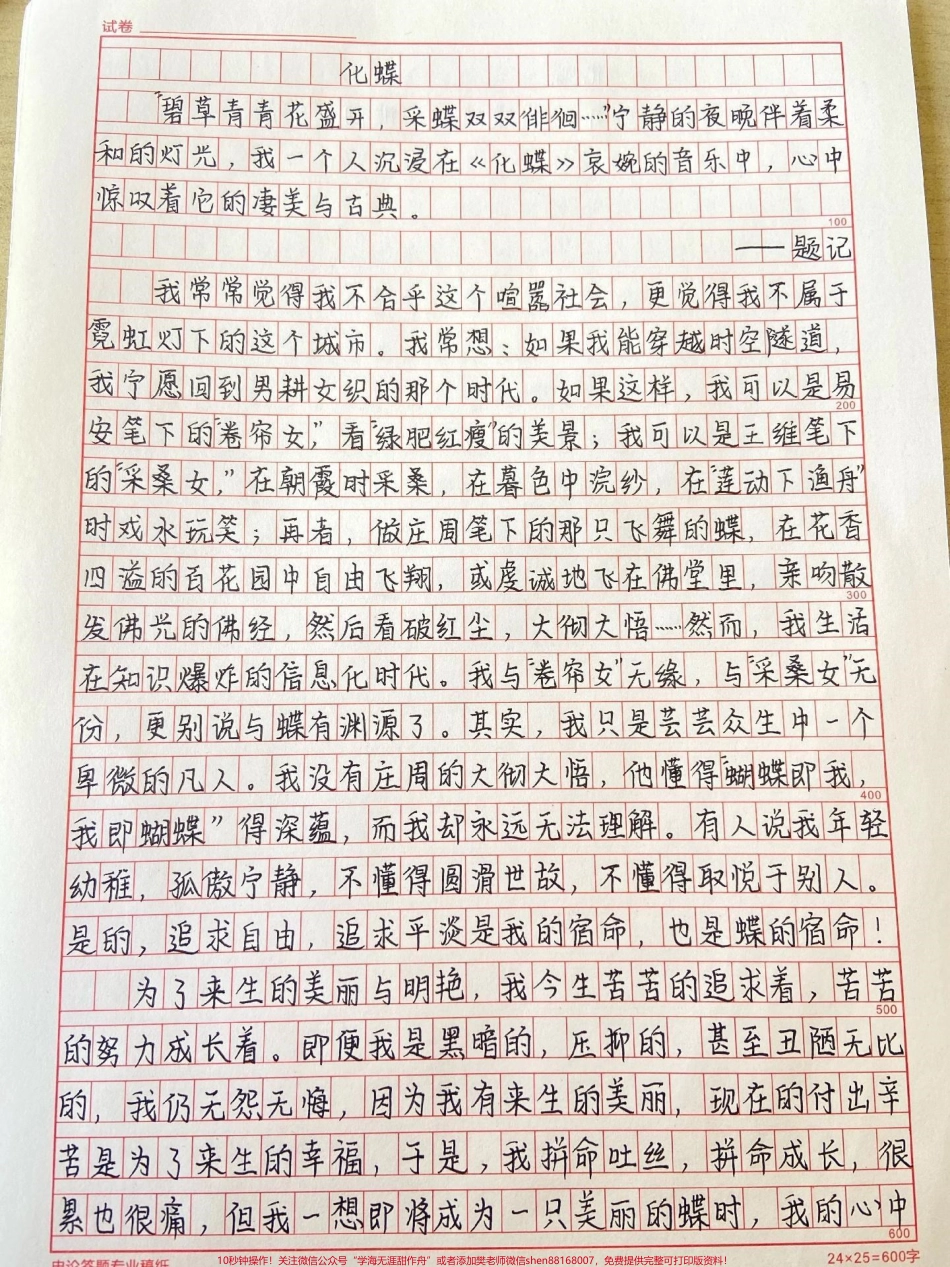 试卷
化蝶
“碧草青青花盛开，采蝶双双俳徊……”宁静的夜晚伴着柔
和的灯光，我一个人沉浸在《化蝶》哀婉的音乐中，心中
惊叹着它的凄美与古典。
100
——题记
我常常觉得我不合乎这个喧嚣社会，更觉得我不属于
霓虹灯下的这个城市。我常想：如果我能穿越时空隧道，
我宁愿回到男耕女织的那个时代。如果这样，我可以是易
200
安笔下的“卷帘女，”看“绿肥红瘦”的美景；我可以是王维笔下
的“采桑女，”在朝霞时采桑，在暮色中浣纱，在“莲动下渔舟”
时戏水玩笑；再者，做庄周笔下的那只飞舞的蝶，在花香
四溢的百花园中自由飞翔，或虔诚地飞在佛堂里，亲吻散
300
发佛光的佛经，然后看破红尘，大彻大悟……然而，我生活
在知识爆炸的信息化时代。我与“卷帘女”无缘，与“采桑女”无
份，更别说与蝶有渊源了。其实，我只是芸芸众生中一个
卑微的凡人。我没有庄周的大彻大悟，他懂得“蝴蝶即我，
400
我即蝴蝶”得深蕴，而我却永远无法理解。有人说我年轻
幼稚，孤傲宁静，不懂得圆滑世故，不懂得取悦于别人。
是的，追求自由，追求平淡是我的宿命，也是蝶的宿命！
为了来生的美丽与明艳，我今生苦苦的追求着，苦苦
500
的努力成长着。即便我是黑暗的，压抑的，甚至丑陋无比
的，我仍无怨无悔，因为我有来生的美丽，现在的付出辛
苦是为了来生的幸福，于是，我拼命吐丝，拼命成长，很
累也很痛，但我一想即将成为一只美丽的蝶时，我的心中
600
申论答题专业稿纸
10秒钟操作！关注微信公众号“学海无涯甜作舟”或者添加樊老师微信shen88168007，免费提供完整可打印版资料！
24×25=600字